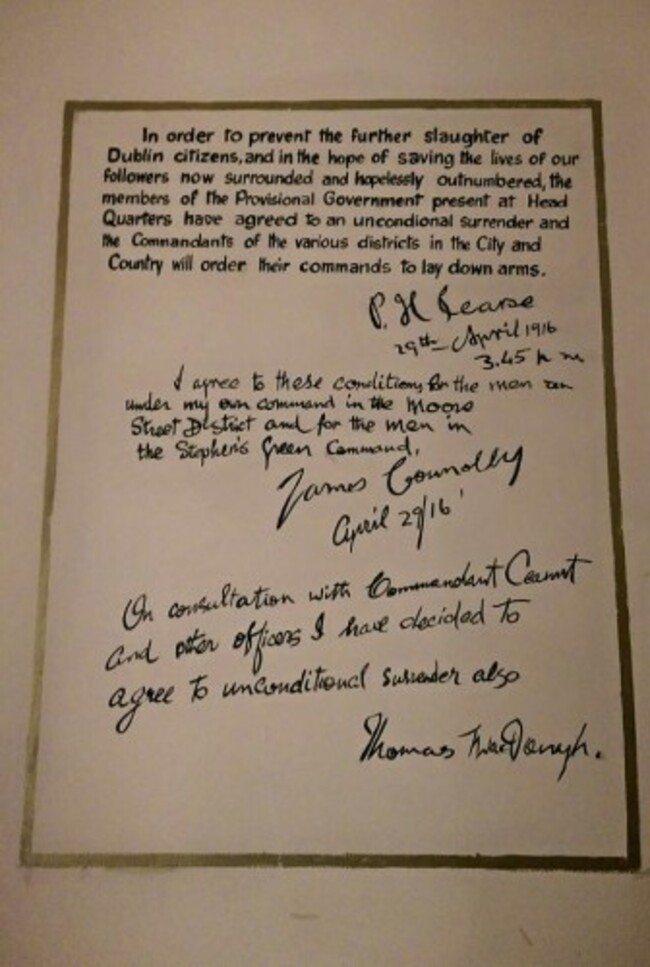 In order to prevent the further slaughter of
Dublin citizens, and in the hope of saving the lives of our
followers now surrounded and hopelessly outnumbered, the
members of the Provisional Government present at Head
Quarters have agreed to an uncondional surrender and
the Commandants of the various districts in the City and
Country will order their commands to lay down arms.
P. H. Pearse
29th April 1916
3.45 p m
I agree to these conditions for the men
under my own command in the Moore
Street District and for the men in
the Stephen's Green Command.
James Connolly
April 29/16
On consultation with Commandant Ceannt
and other officers I have decided to
agree to unconditional surrender also
Thomas MacDonagh.